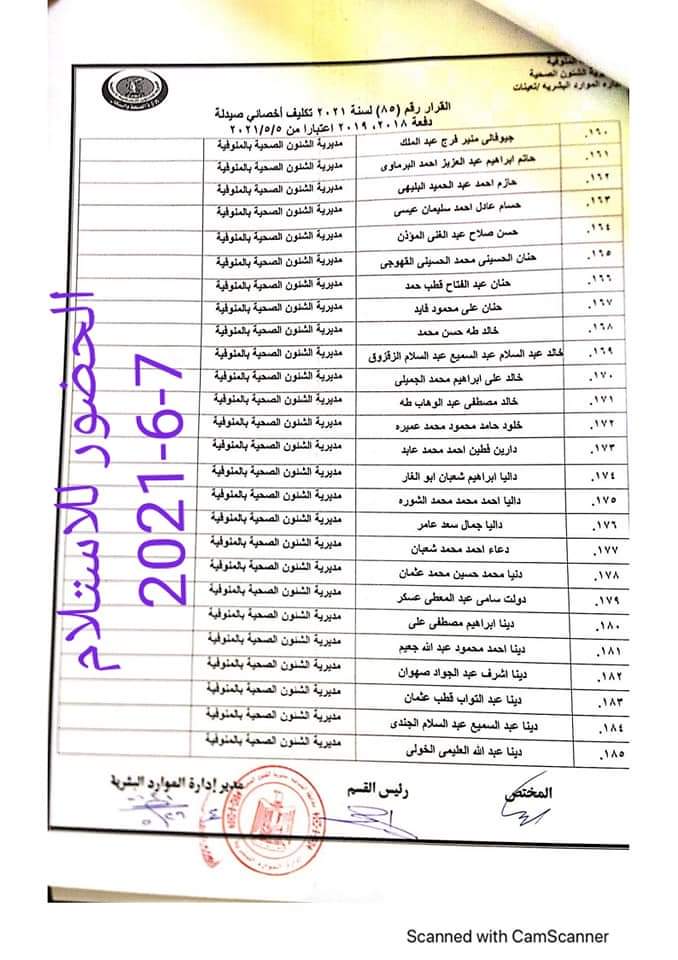 المنوفية
مديرية الشئون الصحية
اداره الموارد البشريه /تعينات
القرار رقم (٨٥) لسنة ٢٠٢١ تكليف أخصائي صيدلة
دفعة ٢٠١٨، ٢٠١٩ اعتبارا من ٢٠٢١/٥/٥
١٦٠. جيوفانى منير فرج عبد الملك مديرية الشئون الصحية بالمنوفية
١٦١. حاتم ابراهيم عبد العزيز احمد البرماوى مديرية الشئون الصحية بالمنوفية
١٦٢. حازم احمد عبد الحميد البليهى مديرية الشئون الصحية بالمنوفية
١٦٣. حسام عادل احمد سليمان عيسى مديرية الشئون الصحية بالمنوفية
١٦٤. حسن صلاح عبد الغنى المؤذن مديرية الشئون الصحية بالمنوفية
١٦٥. حنان الحسينى محمد الحسينى القهوجى مديرية الشئون الصحية بالمنوفية
١٦٦. حنان عبد الفتاح قطب حمد مديرية الشئون الصحية بالمنوفية
١٦٧. حنان على محمود فايد مديرية الشئون الصحية بالمنوفية
١٦٨. خالد طه حسن محمد مديرية الشئون الصحية بالمنوفية
١٦٩. خالد عبد السلام عبد السميع عبد السلام الزقزوق مديرية الشئون الصحية بالمنوفية
١٧٠. خالد على ابراهيم محمد الجميلى مديرية الشئون الصحية بالمنوفية
١٧١. خالد مصطفى عبد الوهاب طه مديرية الشئون الصحية بالمنوفية
١٧٢. خلود حامد محمود محمد عميره مديرية الشئون الصحية بالمنوفية
١٧٣. دارين فطين احمد محمد عابد مديرية الشئون الصحية بالمنوفية
١٧٤. داليا ابراهيم شعبان ابو الغار مديرية الشئون الصحية بالمنوفية
١٧٥. داليا احمد محمد محمد الشوره مديرية الشئون الصحية بالمنوفية
١٧٦. داليا جمال سعد عامر مديرية الشئون الصحية بالمنوفية
١٧٧. دعاء احمد محمد شعبان مديرية الشئون الصحية بالمنوفية
١٧٨. دنيا محمد حسين محمد عثمان مديرية الشئون الصحية بالمنوفية
١٧٩. دولت سامى عبد المعطى عسكر مديرية الشئون الصحية بالمنوفية
١٨٠. دينا ابراهيم مصطفى على مديرية الشئون الصحية بالمنوفية
١٨١. دينا احمد محمود عبد الله جعيم مديرية الشئون الصحية بالمنوفية
١٨٢. دينا اشرف عبد الجواد صهوان مديرية الشئون الصحية بالمنوفية
١٨٣. دينا عبد التواب قطب عثمان مديرية الشئون الصحية بالمنوفية
١٨٤. دينا عبد السميع عبد السلام الجندى مديرية الشئون الصحية بالمنوفية
١٨٥. دينا عبد الله العليمى الخولى مديرية الشئون الصحية بالمنوفية
الحضور للاستلام
2021-6-7
المختص رئيس القسم مدير إدارة الموارد البشرية
Scanned with CamScanner